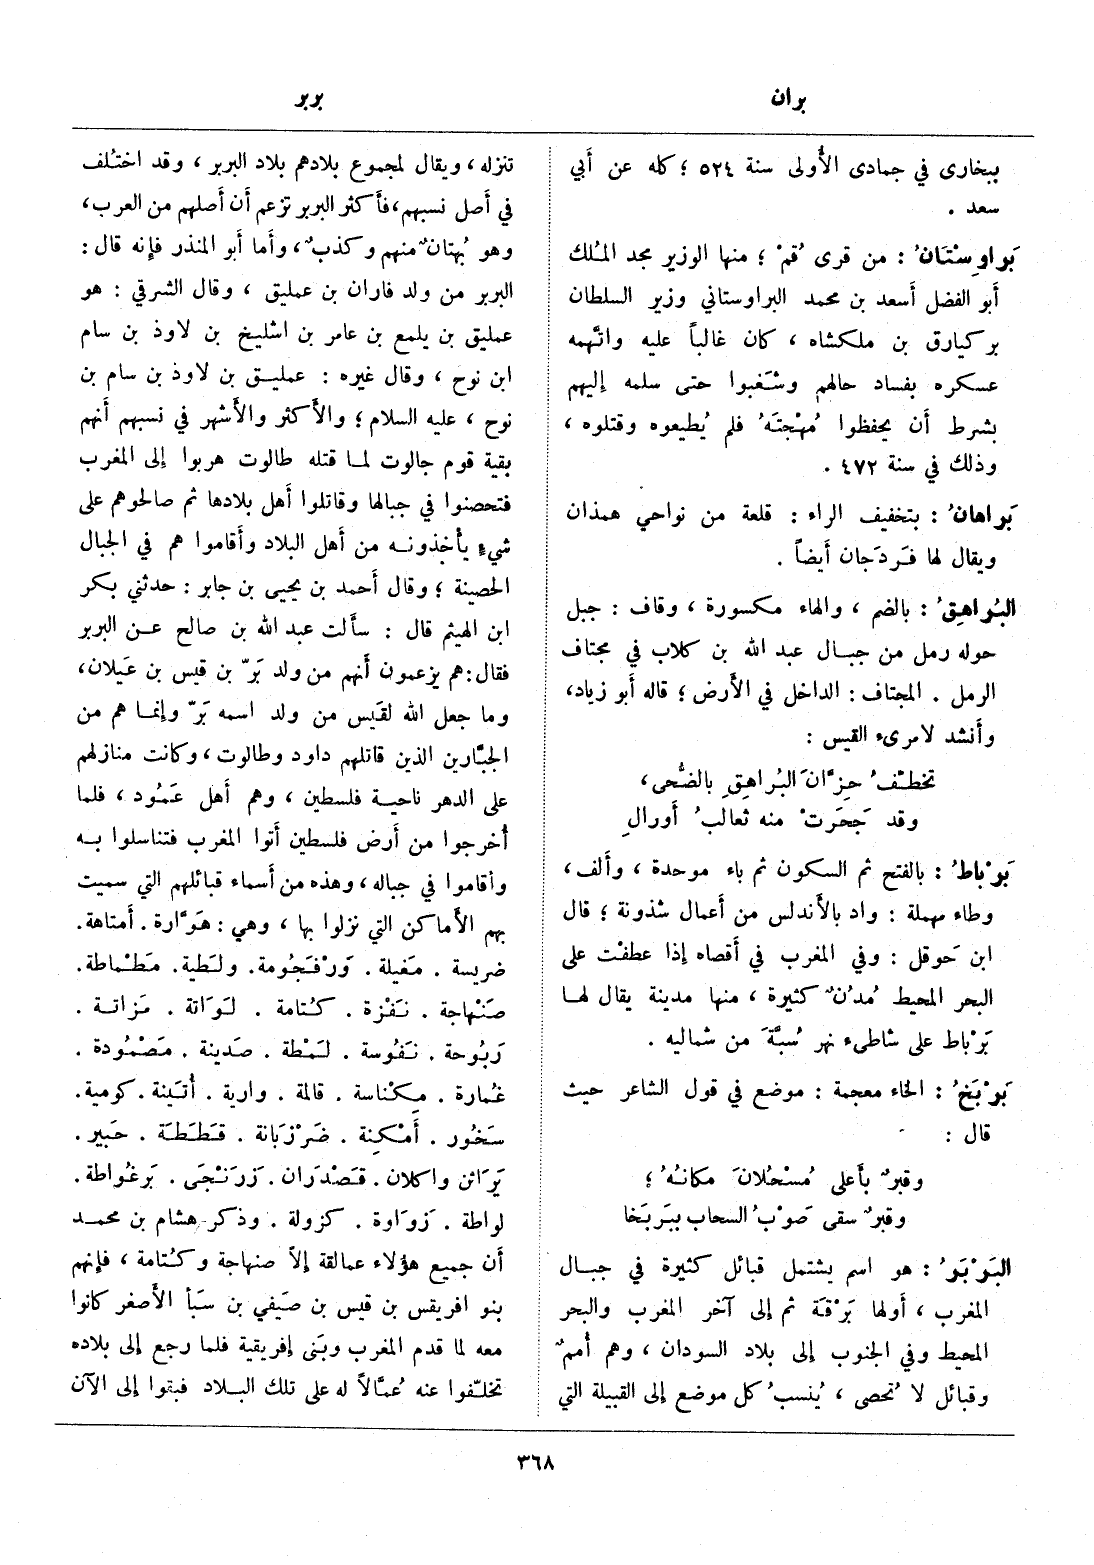 بران
بربر
ببخارى في جمادى الأُولى سنة ٥٢٤ ؛ كله عن أَبي
سعد .
بَراوِسْتَانُ : من قرى قُمْ ؛ منها الوزير مجد المُلك
أبو الفضل أسعد بن محمد البراوستاني وزير السلطان
بركيارق بن ملكشاه ، كان غالباً عليه واتَّهمه
عسكره بفساد حالهم وشَغبوا حتى سلمه إليهم
بشرط أَن يحفظوا مُهْجتَهُ فلم يُطيعوه وقتلوه ،
وذلك في سنة ٤٧٢ .
بَراهانُ : بتخفيف الراء : قلعة من نواحي همذان
ويقال لها فَردَجان أَيضاً .
البُراهِقُ : بالضم ، والهاء مكسورة ، وقاف : جبل
حوله رمل من جبال عبد الله بن كلاب في مجتاف
الرمل . المجتاف : الداخل في الأَرض ؛ قاله أبو زياد،
وأَنشد لامرىء القيس :
تخطفُ حِزَّانَ البُراهِقِ بالضُّحى،
وقد جَحَرتْ منه ثعالبُ أَورالِ
بَرْباطُ : بالفتح ثم السكون ثم باء موحدة ، وأَلف،
وطاء مهملة : واد بالأَندلس من أَعمال شذونة ؛ قال
ابن حَوقل : وفي المغرب في أَقصاه إذا عطفْت على
البحر المحيط مُدُنٌ كثيرة ، منها مدينة يقال لها
بَرْباط على شاطىء نهر سُبَّةَ من شماليه .
بَرْبَخُ : الخاء معجمة : موضع في قول الشاعر حيث
قال :
وقبرٌ بأَعلى مُسْحُلانَ مكانُهُ ؛
وقبرٌ سقى صَوْبُ السحاب ببَربَخا
البَرْبَرُ : هو اسم يشتمل قبائل كثيرة في جبال
المغرب ، أَولها بَرْقَة ثم إلى آخر المغرب والبحر
المحيط وفي الجنوب إلى بلاد السودان ، وهم أُممٌ
وقبائل لا تُحصى ، يُنسبُ كل موضع إلى القبيلة التي
تنزله ، ويقال لمجموع بلادهم بلاد البربر ، وقد اختُلف
في أَصل نسبهم،فأَكثر البربر تزعم أَن أَصلهم من العرب،
وهو بُهتانٌ منهم وكذبٌ ، وأَما أبو المنذر فإنه قال :
البربر من ولد فاران بن عمليق ، وقال الشرقي : هو
عمليق بن يلمع بن عامر بن اشليخ بن لاوذ بن سام
ابن نوح ، وقال غيره : عمليق بن لاوذ بن سام بن
نوح ، عليه السلام ؛ والأَكثر والأَشهر في نسبهم أَنهم
بقية قوم جالوت لما قتله طالوت هربوا إلى المغرب
فتحصنوا في جبالها وقاتلوا أَهل بلادها ثم صالحوهم على
شيءٍ يأخذونه من أَهل البلاد وأَقاموا هم في الجبال
الحصينة ؛ وقال أَحمد بن يحيى بن جابر : حدثني بكر
ابن الهيثم قال : سألت عبد الله بن صالح عن البربر
فقال:هم يزعمون أَنهم من ولد بَرّ بن قيس بن عَيلان،
وما جعل الله لقَيس من ولد اسمه بَرّ وإنما هم من
الجبَّارين الذين قاتلهم داود وطالوت ، وكانت منازلهم
على الدهر ناحية فلسطين ، وهم أهل عَمُود ، فلما
أُخرجوا من أَرض فلسطين أَتوا المغرب فتناسلوا به
وأَقاموا في جباله ، وهذه من أَسماء قبائلهم التي سميت
بهم الأَماكن التي نزلوا بها ، وهي : هَوَّارة . أَمتاهة.
ضريسة . مَغيلة . وَرْفَجُومة. ولَطية. مَطْماطة.
صَنْهاجة . نَفْزة . كُتامة . لَوَاتة . مَزاتة .
رَبُوحة . نَفُوسة . لَمْطة . صَدينة . مَصْمُودة .
غُمارة . مِكْناسة . قالمة . وارية . أُتَينة . كومية.
سَخُور . أَمْكِنة . ضَرْزبَانة . قَطَطَة . حَبير.
يَرَاثن واكلان . قَصْدَران . زَرَنْجَى . بَرغُواطة.
لواطة . زَوَاوة . كزولة . وذكر هشام بن محمد
أن جميع هؤلاء عمالقة إلاَّ صنهاجة وكُتامة ، فإنهم
بنو افريقس بن قيس بن صَيفي بن سَبَأ الأَصغر كانوا
معه لما قدم المغرب وبَنى إفريقية فلما رجع إلى بلاده
تخلّفوا عنه عُمَّالاً له على تلك البلاد فبقوا إلى الآن
٣٦٨